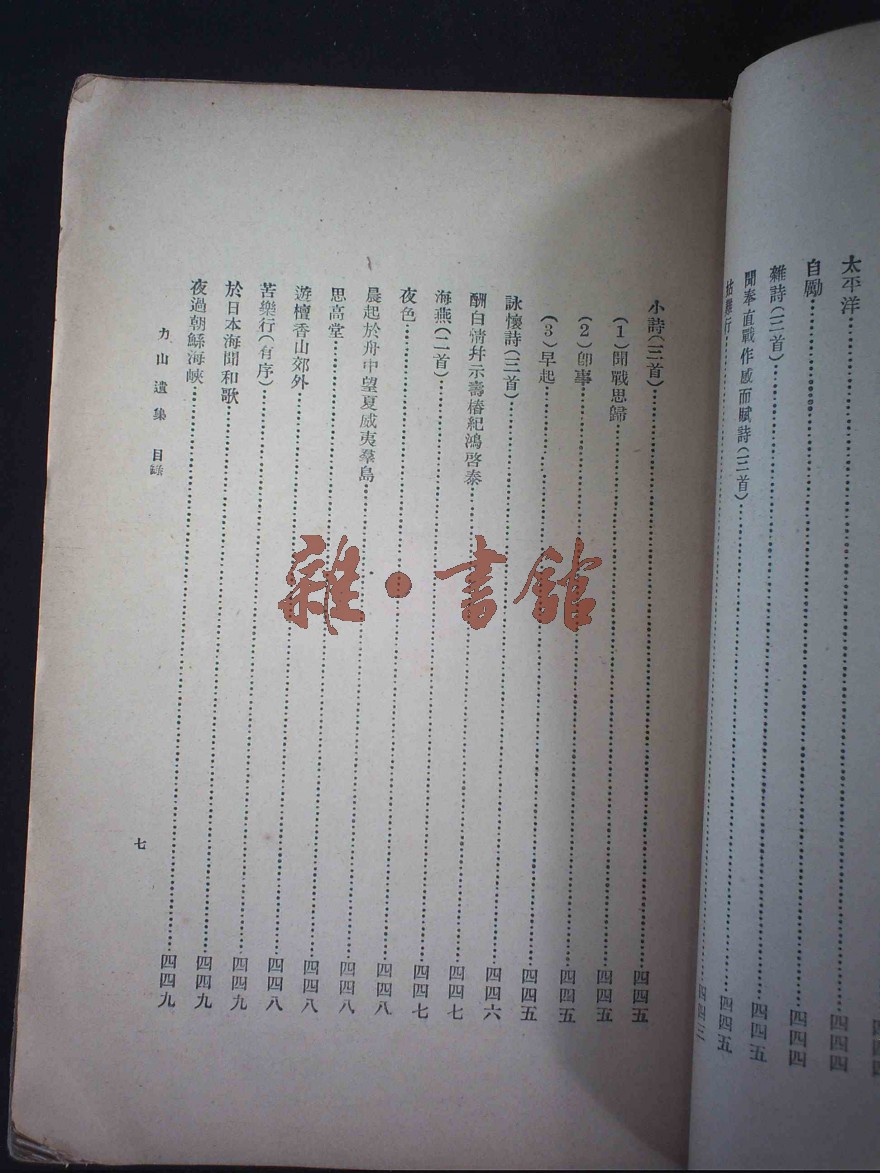 太平洋……四四四
自勵……四四四
雜詩(三首)……四四五
聞奉直戰作感而賦詩(三首)……四四五
難行……四四三
小詩(三首)……四四五
(1)聞戰思歸……四四五
(2)卽事……四四五
(3)早起……四四五
詠懷詩(三首)……四四六
酬白情幷示壽椿紀鴻啓泰……四四七
海燕(二首)……四四七
夜色……四四八
晨起於舟中望夏威夷羣島……四四八
思高堂……四四八
遊檀香山郊外……四四八
苦樂行(有序)……四四九
於日本海聞和歌……四四九
夜過朝鮮海峽……四四九
力山遺集 目錄
七
雜·書館